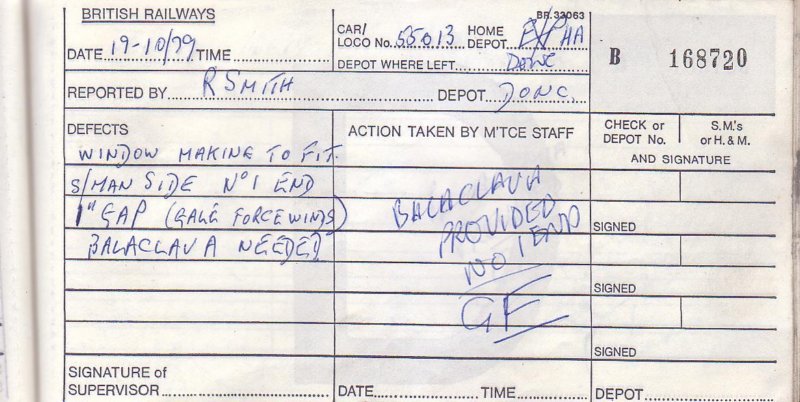 BRITISH RAILWAYS
BR.33063
DATE 19-10/79 TIME
CAR/ LOCO No. 55013 HOME DEPOT HA
DEPOT WHERE LEFT
B 168720
REPORTED BY R SMITH DEPOT DONC.
DEFECTS
ACTION TAKEN BY M'TCE STAFF
CHECK or DEPOT No.
S.M.'s or H. & M.
AND SIGNATURE
WINDOW MAKING TO FIT.
S/MAN SIDE No1 END
1" GAP (GALE FORCE WINDS)
BALACLAVA NEEDED
BALACLAVA
PROVIDED
NO 1 END
GF
SIGNED
SIGNED
SIGNED
SIGNATURE of SUPERVISOR
DATE TIME
DEPOT